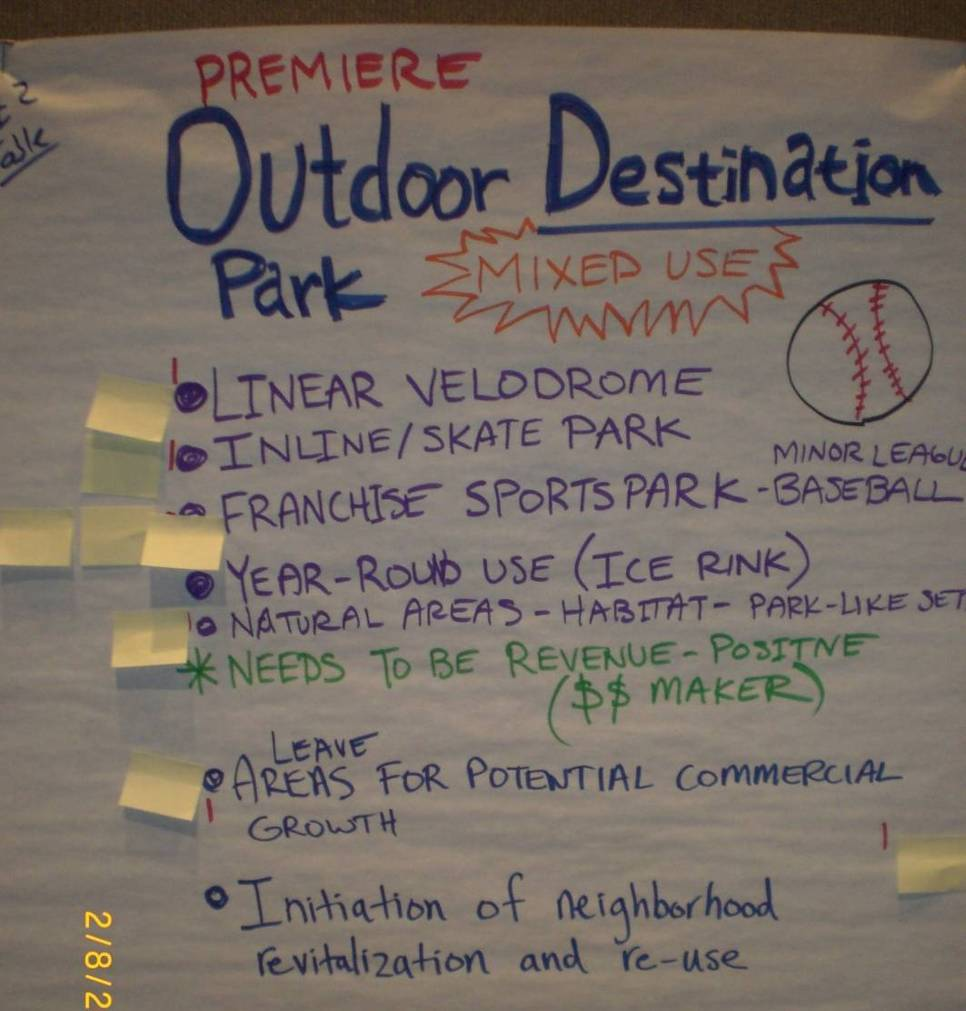 PREMIERE
Outdoor Destination
Park MIXED USE
LINEAR VELODROME
INLINE/SKATE PARK
MINOR LEAGU
FRANCHISE SPORTS PARK - BASEBALL
YEAR-ROUND USE (ICE RINK)
NATURAL AREAS - HABITAT - PARK-LIKE SET
* NEEDS TO BE REVENUE-POSITIVE
($$ MAKER)
LEAVE
AREAS FOR POTENTIAL COMMERCIAL
GROWTH
Initiation of neighborhood
revitalization and re-use
2/8/2